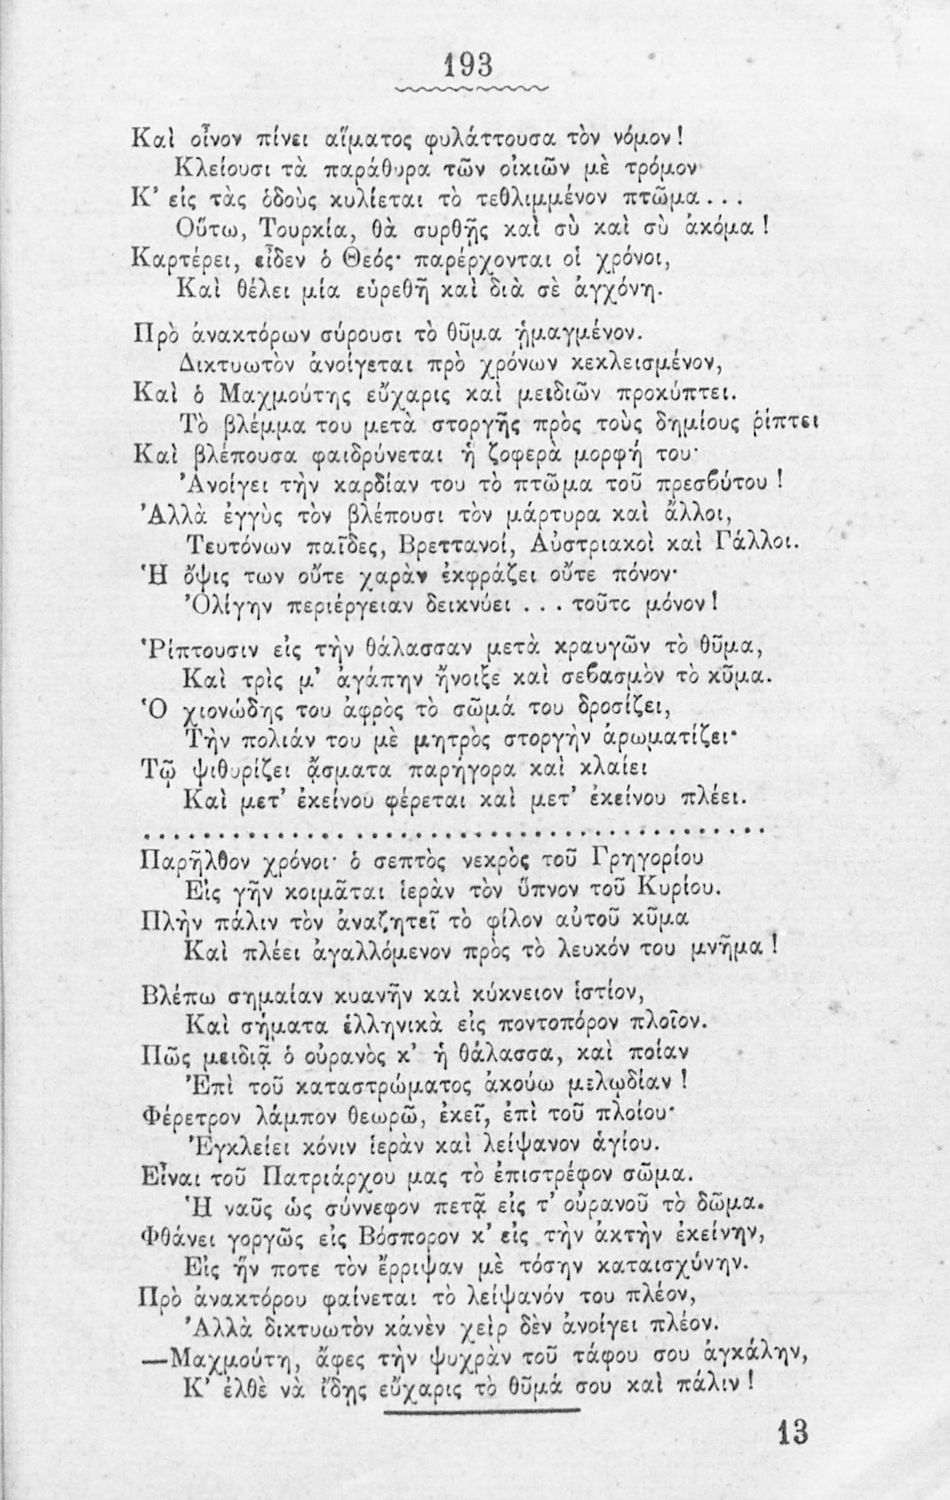 193
Καὶ οἶνον πίνει αἵματος φυλάττουσα τὸν νόμον!
Κλείουσι τὰ παράθυρα τῶν οἰκιῶν μὲ τρόμον
Κ’ εἰς τὰς ὁδοὺς κυλίεται τὸ τεθλιμμένον πτῶμα...
Οὕτω, Τουρκία, θὰ συρθῇς καὶ σὺ καὶ σὺ ἀκόμα!
Καρτέρει, εἶδεν ὁ Θεός· παρέρχονται οἱ χρόνοι,
Καὶ θέλει μία εὑρεθῆ καὶ διὰ σὲ ἀγχόνη.
Πρὸ ἀνακτόρων σύρουσι τὸ θῦμα ᾑμαγμένον.
Δικτυωτὸν ἀνοίγεται πρὸ χρόνων κεκλεισμένον,
Καὶ ὁ Μαχμούτης εὔχαρις καὶ μειδιῶν προκύπτει.
Τὸ βλέμμα του μετὰ στοργῆς πρὸς τοὺς δημίους ῥίπτει
Καὶ βλέπουσα φαιδρύνεται ἡ ζοφερὰ μορφή του·
Ἀνοίγει τὴν καρδίαν του τὸ πτῶμα τοῦ πρεσβύτου!
Ἀλλὰ ἐγγὺς τὸν βλέπουσι τὸν μάρτυρα καὶ ἄλλοι,
Τευτόνων παῖδες, Βρεττανοί, Αὐστριακοὶ καὶ Γάλλοι.
Ἡ ὄψις των οὔτε χαρὰν ἐκφράζει οὔτε πόνον·
Ὀλίγην περιέργειαν δεικνύει... τοῦτο μόνον!
Ῥίπτουσιν εἰς τὴν θάλασσαν μετὰ κραυγῶν τὸ θῦμα,
Καὶ τρὶς μ’ ἀγάπην ἤνοιξε καὶ σεβασμὸν τὸ κῦμα.
Ὁ χιονώδης του ἀφρὸς τὸ σῶμά του δροσίζει,
Τὴν πολιάν του μὲ μητρὸς στοργὴν ἀρωματίζει·
Τῷ ψιθυρίζει ᾄσματα παρήγορα καὶ κλαίει
Καὶ μετ’ ἐκείνου φέρεται καὶ μετ’ ἐκείνου πλέει.
..........................................
Παρῆλθον χρόνοι· ὁ σεπτὸς νεκρὸς τοῦ Γρηγορίου
Εἰς γῆν κοιμᾶται ἱερὰν τὸν ὕπνον τοῦ Κυρίου.
Πλὴν πάλιν τὸν ἀναζητεῖ τὸ φίλον αὐτοῦ κῦμα
Καὶ πλέει ἀγαλλόμενον πρὸς τὸ λευκόν του μνῆμα!
Βλέπω σημαίαν κυανῆν καὶ κύκνειον ἱστίον,
Καὶ σήματα ἑλληνικὰ εἰς ποντοπόρον πλοῖον.
Πῶς μειδιᾷ ὁ οὐρανὸς κ’ ἡ θάλασσα, καὶ ποίαν
Ἐπὶ τοῦ καταστρώματος ἀκούω μελῳδίαν!
Φέρετρον λάμπον θεωρῶ, ἐκεῖ, ἐπὶ τοῦ πλοίου·
Ἐγκλείει κόνιν ἱερὰν καὶ λείψανον ἁγίου.
Εἶναι τοῦ Πατριάρχου μας τὸ ἐπιστρέφον σῶμα.
Ἡ ναῦς ὡς σύννεφον πετᾷ εἰς τ’ οὐρανοῦ τὸ δῶμα.
Φθάνει γοργῶς εἰς Βόσπορον κ’ εἰς τὴν ἀκτὴν ἐκείνην,
Εἰς ἥν ποτε τὸν ἔρριψαν μὲ τόσην καταισχύνην.
Πρὸ ἀνακτόρου φαίνεται τὸ λείψανόν του πλέον,
Ἀλλὰ δικτυωτὸν κἀνὲν χεὶρ δὲν ἀνοίγει πλέον.
—Μαχμούτη, ἄφες τὴν ψυχρὰν τοῦ τάφου σου ἀγκάλην,
Κ’ ἐλθὲ νὰ ἴδῃς εὔχαρις τὸ θῦμά σου καὶ πάλιν!
13